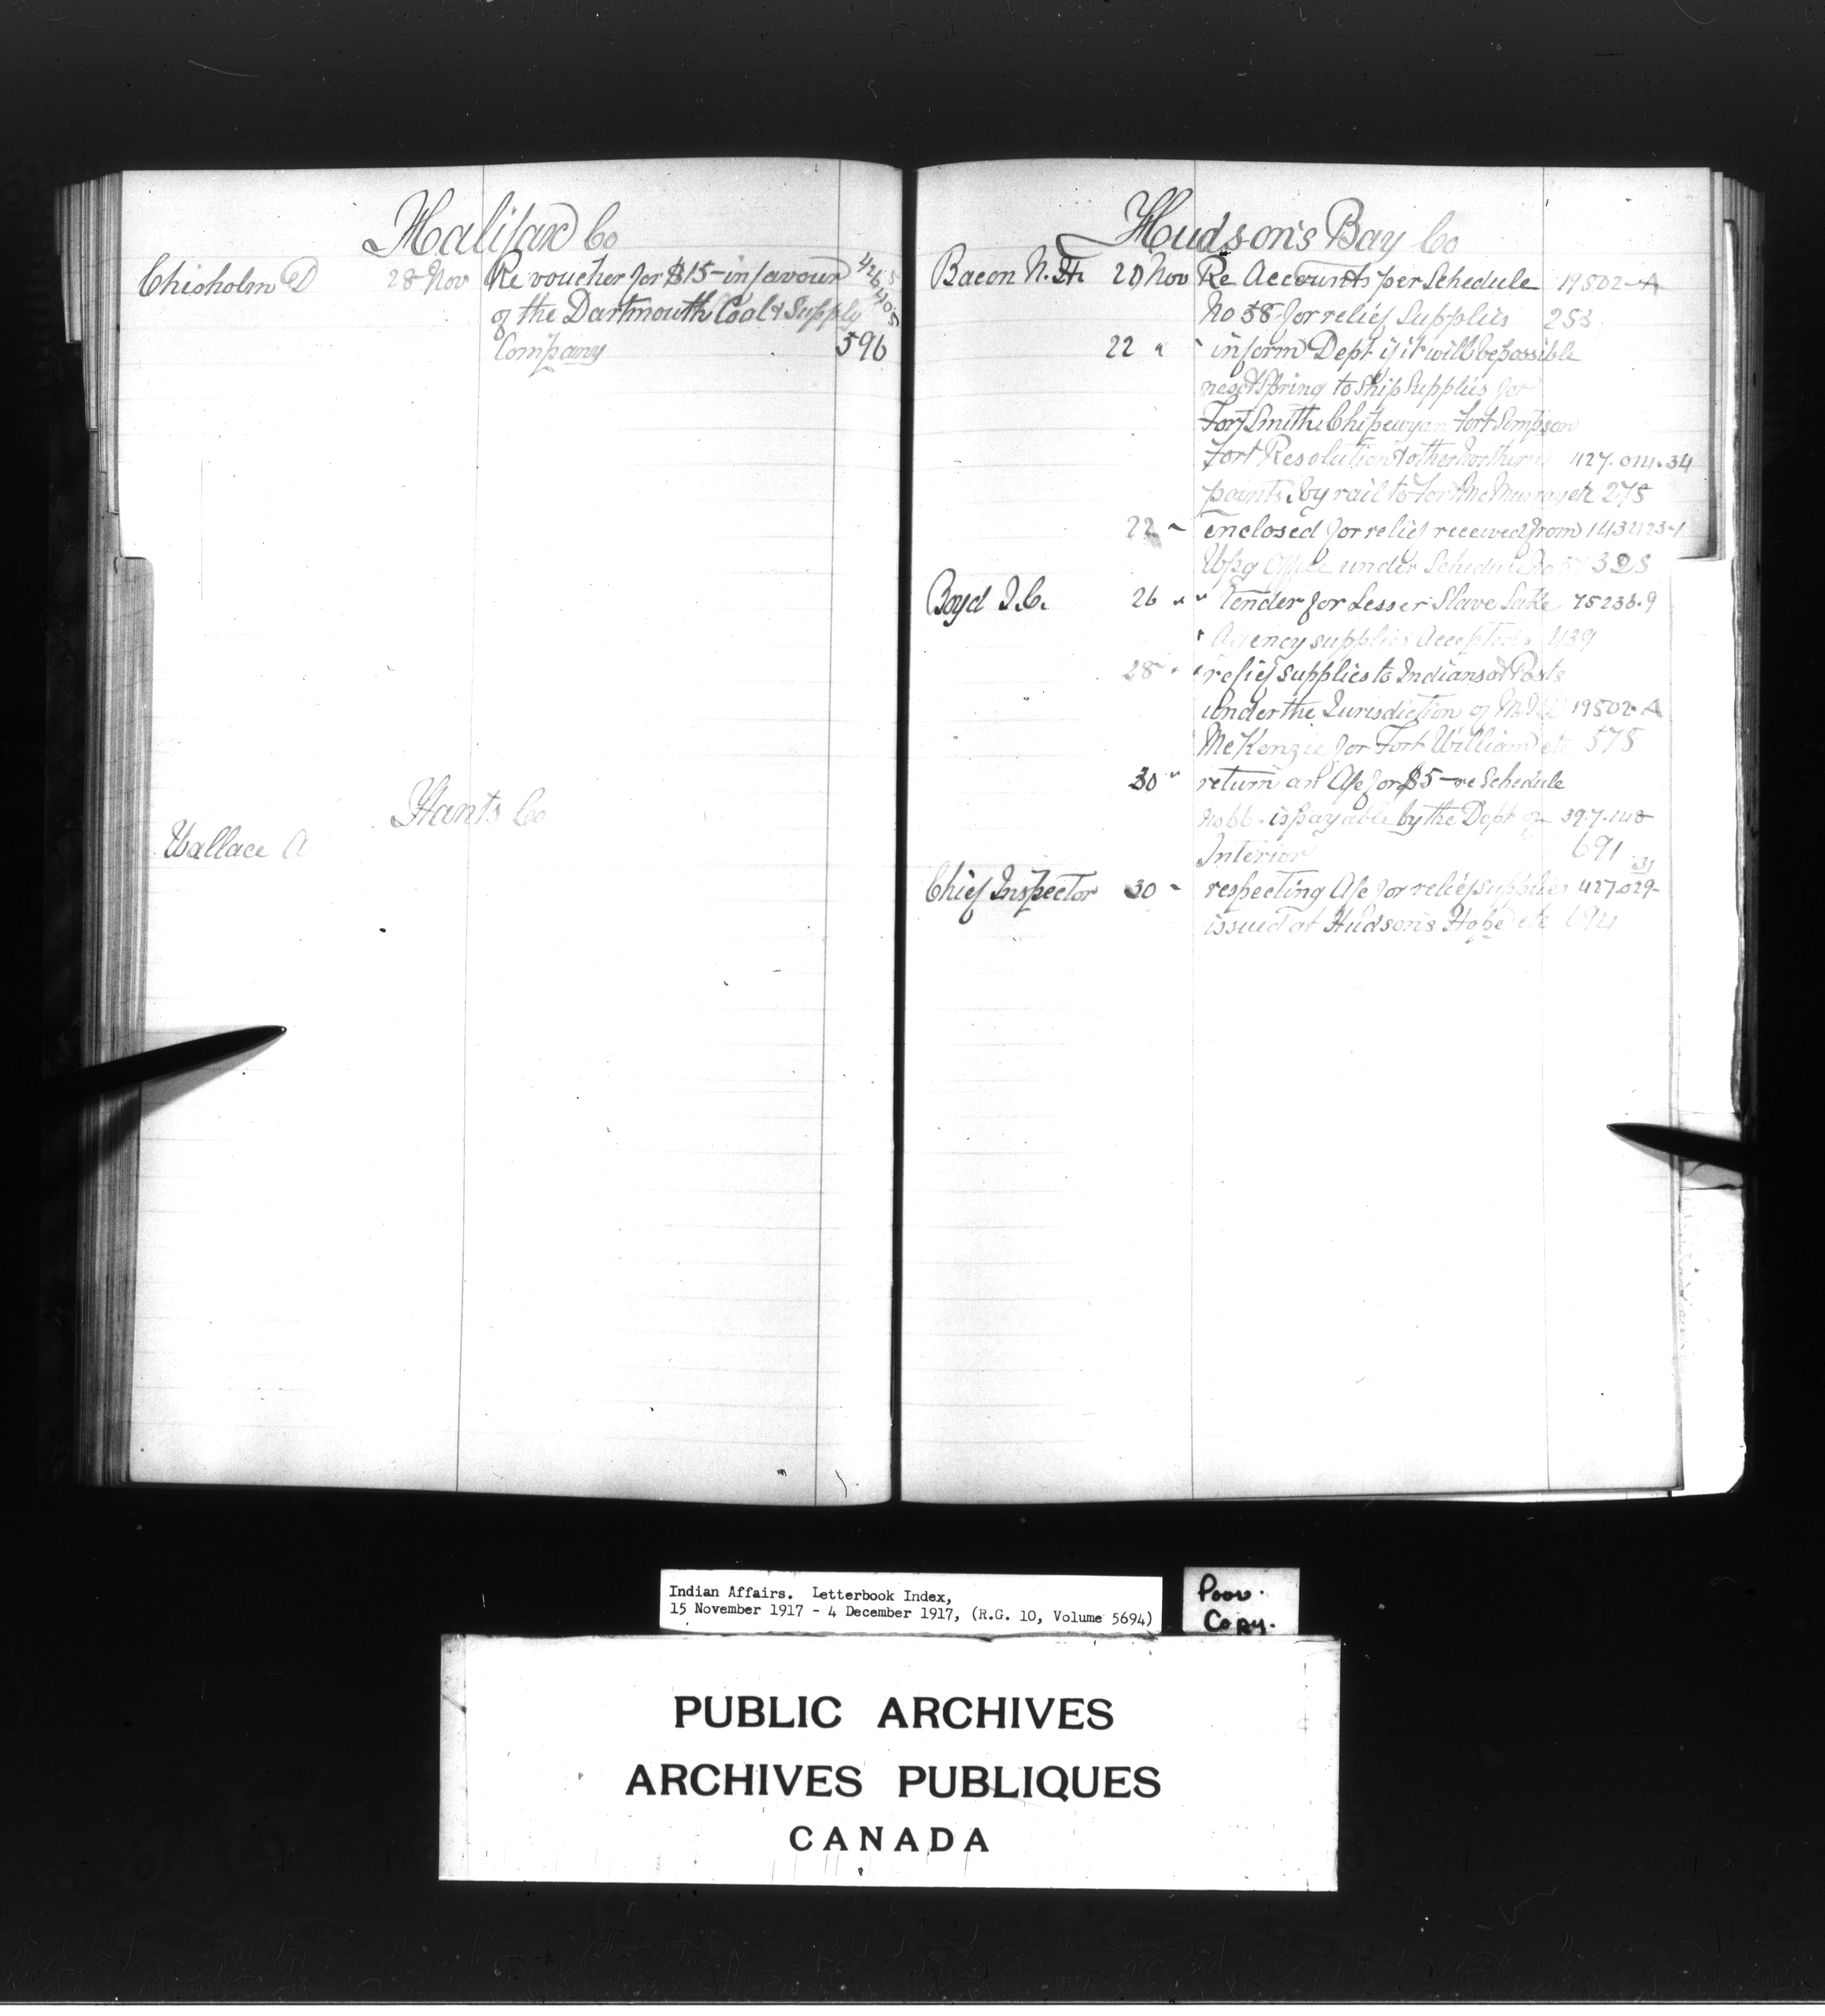 Halifax Co
Chisholm D 28 Nov Re voucher for $15 - in favour
of the Dartmouth Coal & Supply
Company 596
Hants Co
Wallace A
Hudson's Bay Co
Bacon N. H. 20 Nov Re Accounts per Schedule 19502-A
No 58 for relief Supplies 253
22 " " inform Dept if it will be possible
next Spring to ship supplies for
Fort Smith Chipewyan Fort Simpson
Fort Resolution & other Northern 427.014.34
points by rail to Fort McMurray etc 275
22 " enclosed for relief received from
Wpg Office under Schedule 328
Boyd J. C. 26 " " Tender for Lesser Slave Lake 75236.9
" Agency supplies Accepted 439
28 " " relief supplies to Indians at Posts
under the Jurisdiction of 19502-A
McKenzie for Fort William etc 575
30 " return an A/c for $5 - re Schedule
No 66 - is payable by the Dept of
Interior 691
Chief Inspector 30 " respecting A/c for relief supplies 427.029-
issued at Hudson's Hope etc 694
Indian Affairs. Letterbook Index,
15 November 1917 - 4 December 1917, (R.G. 10, Volume 5694)
Poor
Copy.
PUBLIC ARCHIVES
ARCHIVES PUBLIQUES
CANADA